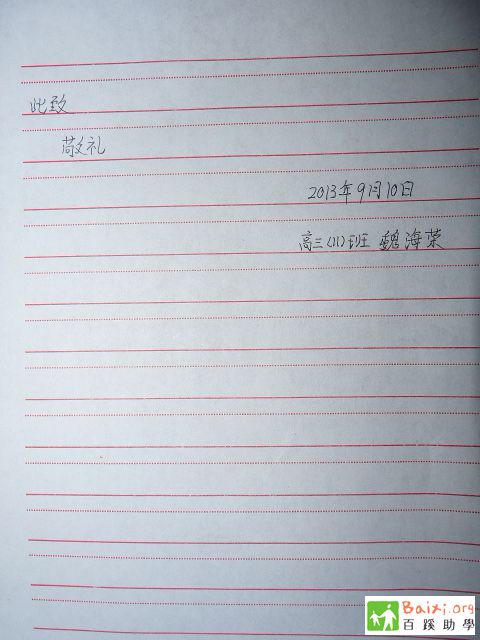 此致
敬礼
2013年9月10日
高三(11)班 魏海荣
Baixi.org
百蹊助學